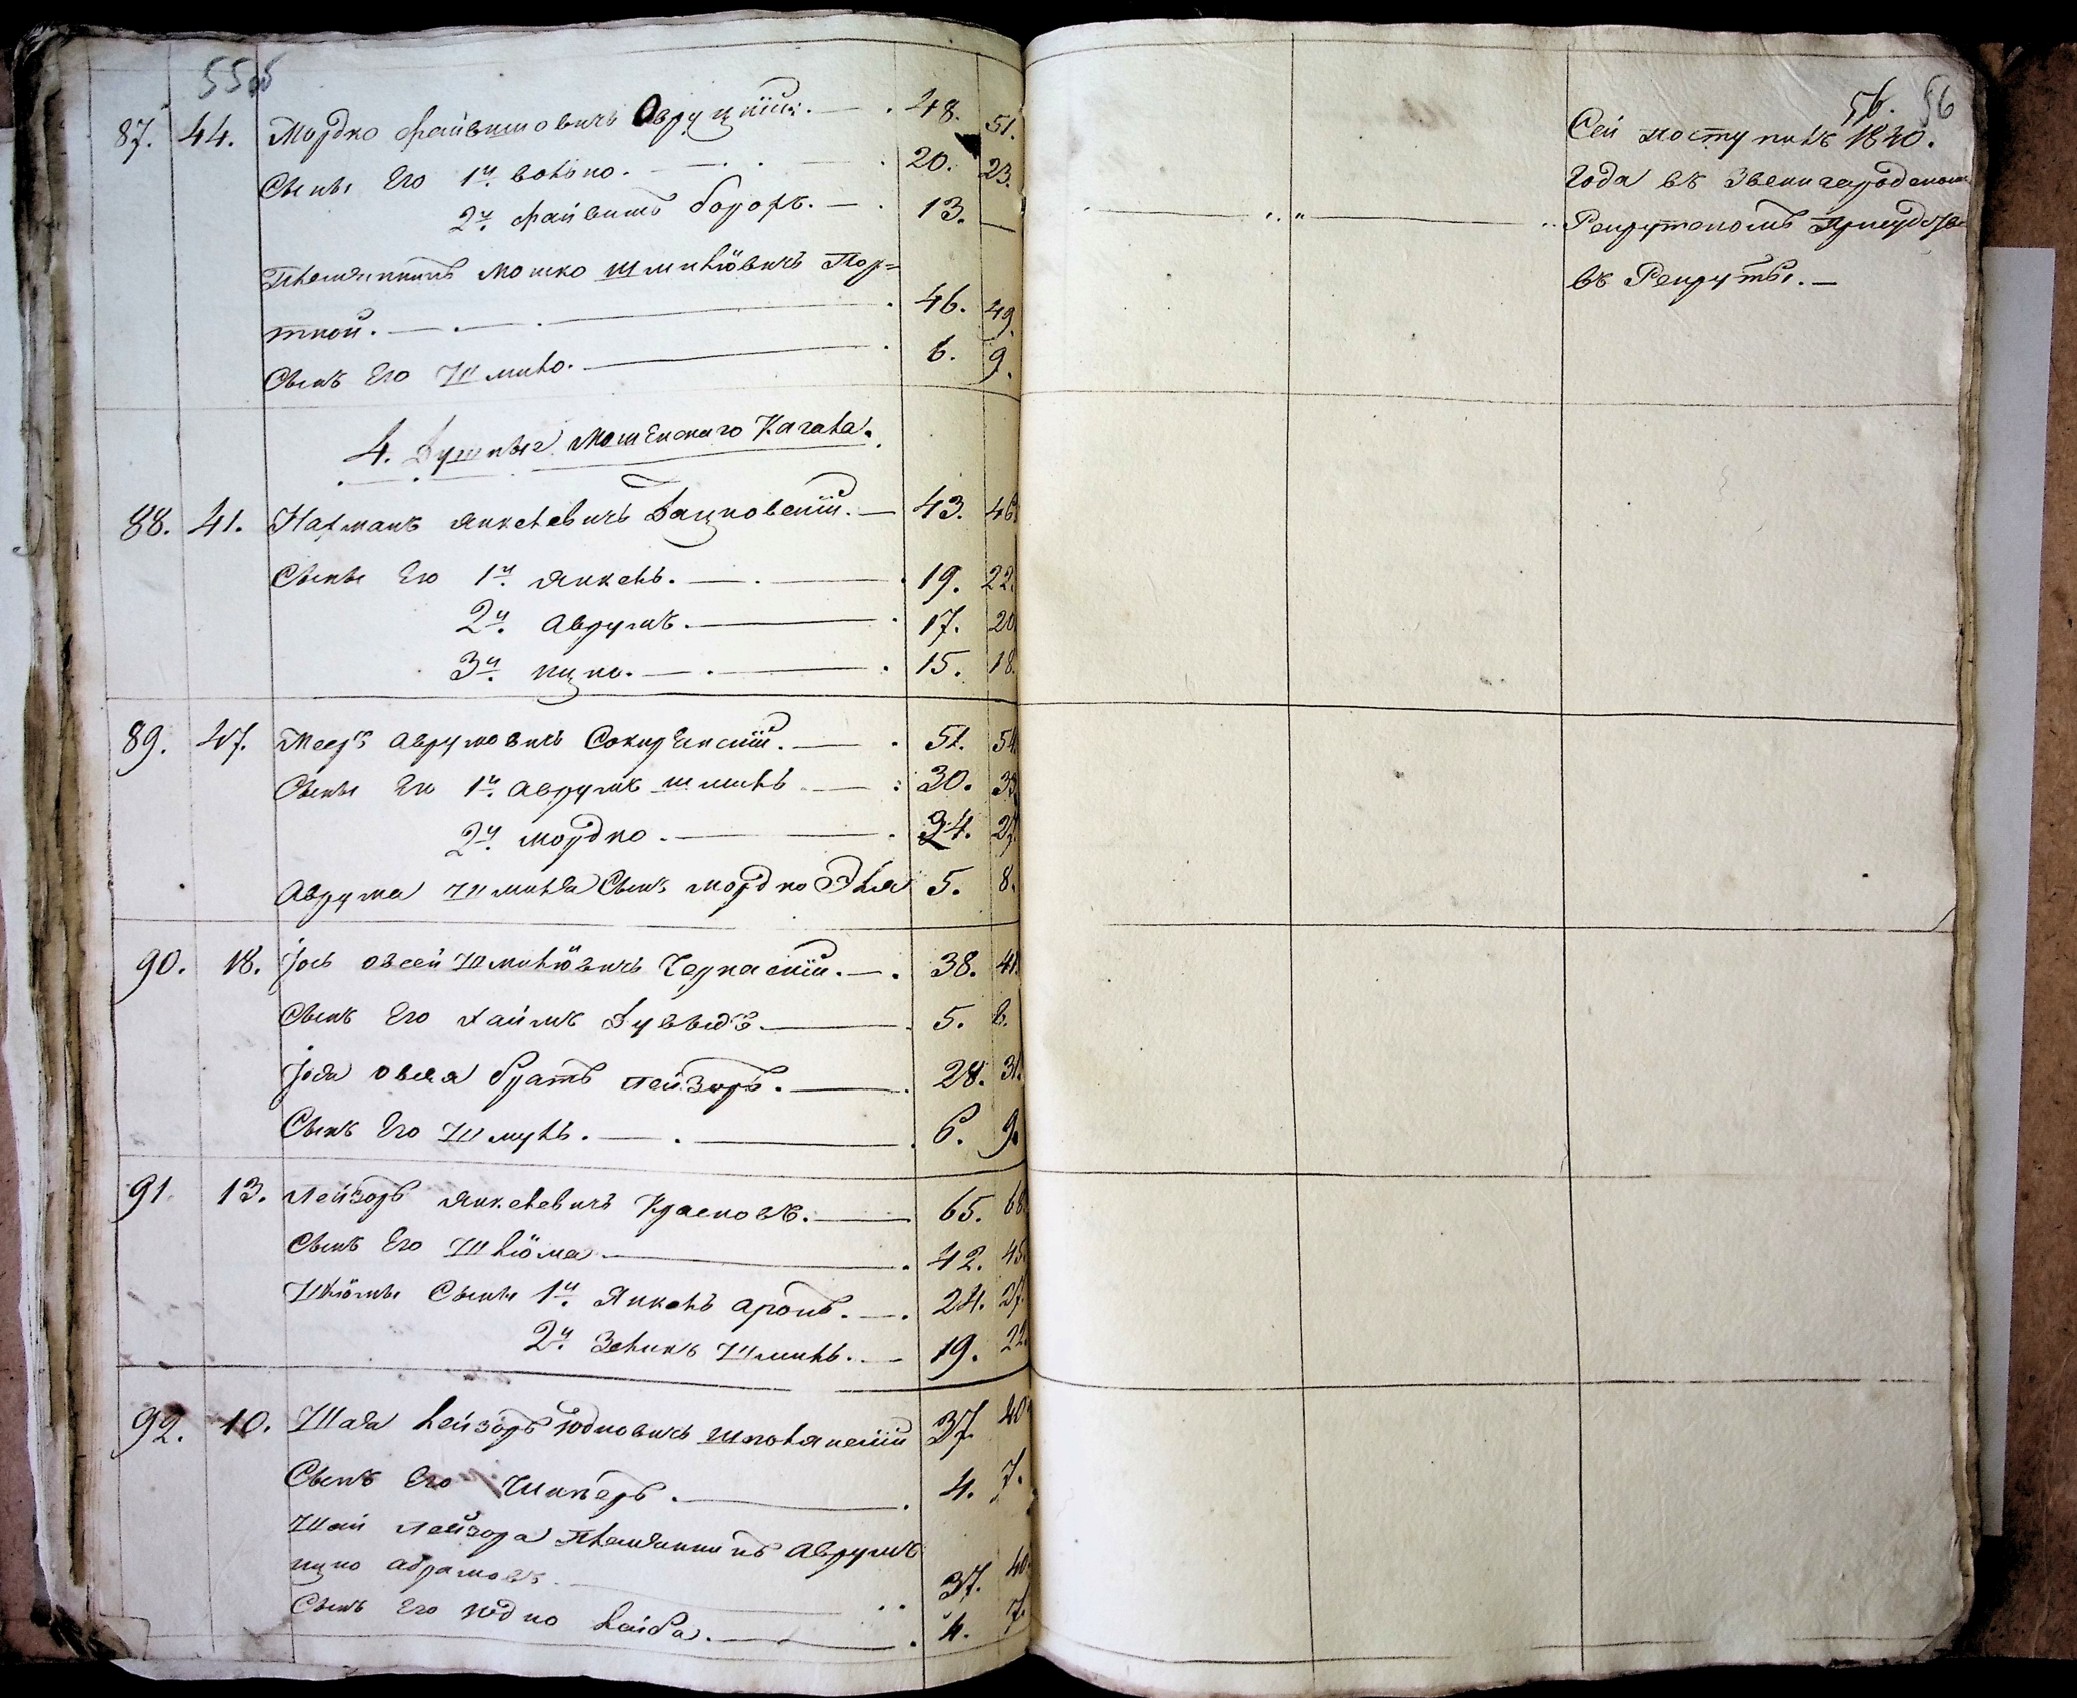 55об
87. 44. Мордко Файвишовичъ Овруцкій. 48. 51.
Сыны Его 1й. Волько. 20. 23.
2й. Файвишъ Борохъ. 13. —
Племянникъ Мошко Шмилёвичъ Пор=
тной. 46. 49.
Сынъ Его Шмило. 6. 9.
4. Душные Мошенскаго Кагала.
88. 41. Нахманъ Янкелевичъ Дацковскій. 43. 46.
Сыны Его 1й. Янкель. 19. 22.
2й. Аврумъ. 17. 20.
3й. Ицко. 15. 18.
89. 47. Мееръ Аврумовичъ Сокиренскій. 51. 54.
Сыны Его 1й. Аврумъ Шмиль 30. 33.
2й. Мордко. 24. 27.
Аврума Шмиля Сынъ Мордко Эля 5. 8.
90. 18. Іось Овсей Шмилёвичъ Черкаскій. 38. 41.
Сынъ Его Хаимъ Дувыдъ. 5. 8.
Іося Овсея братъ Лейзоръ. 28. 31.
Сынъ Его Шмуль. 6. 9.
91. 13. Лейзоръ Янкелевичъ Красновъ. 65. 68.
Сынъ Его Шлёма 42. 45.
Шлёмы Сыны 1й. Янкель Аронъ. 24. 27.
2й. Зеликъ Шмиль. 19. 22.
92. 10. Шая Лейзоръ Юдковичъ Шполянскій 37. 40.
Сынъ Его 4. 7.
Шаи Лейзора Племянникъ Аврумъ
Ицко Абрамовъ 37. 40.
Сынъ Его Юдко Лейба. 4. 7.
56. 56
Сей поступилъ 1840.
Года въ Звенигородскомъ
Рекрутскомъ
въ Рекруты.